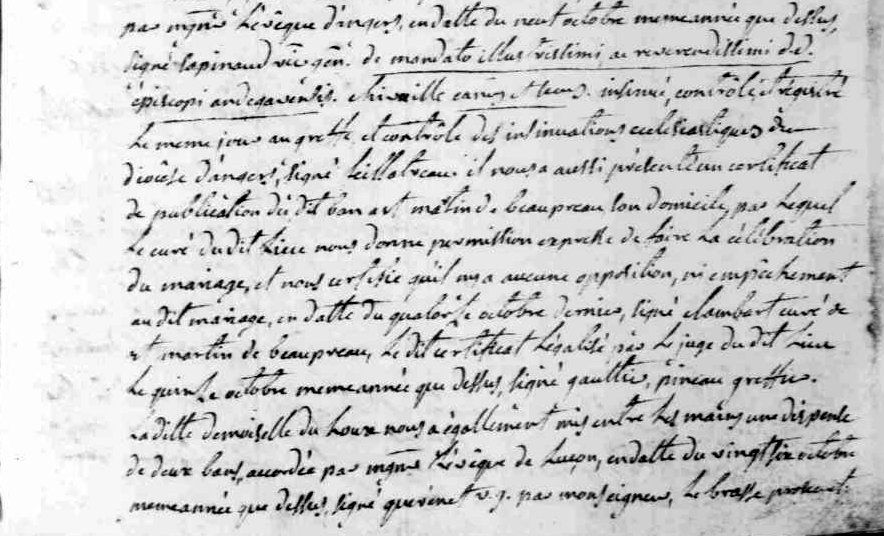 par mgnr L'évêque d'angers, en datte du neuf octobre meme année que dessus,
signé sapinaud vic. gén. de mandato illustrissimi ac reverendissimi d. d.
episcopi andegavensis. insinué, contrôlé, et régistré
Le meme jour au greffe, et contrôle des insinuations ecclesiastiques du
diocèse d'angers, signé il nous a aussi présenté un certificat
de publication du dit ban a st martin de beaupreau son domicile, par Lequel
Le curé du dit Lieu nous donne permission expresse de faire La célébration
du mariage, et nous certifie qu'il n'y a aucune opposition, ni empêchement
au dit mariage, en datte du quatorze octobre dernier, signé clambart curé de
st martin de beaupreau, Le dit certificat Légalisé par Le juge du dit Lieu
Le quinze octobre meme année que dessus, signé gaultier, pineau greffier.
La ditte demoiselle du houx nous a égallement mis entre Les mains une dispense
de deux bans, accordée par mgnr L'évêque de Luçon, en datte du vingt six octobre
meme année que dessus, signé v. g. par monseigneur, Le brasse